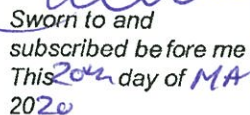 Sworn to and
subscribed before me
This 20th day of MA
2020